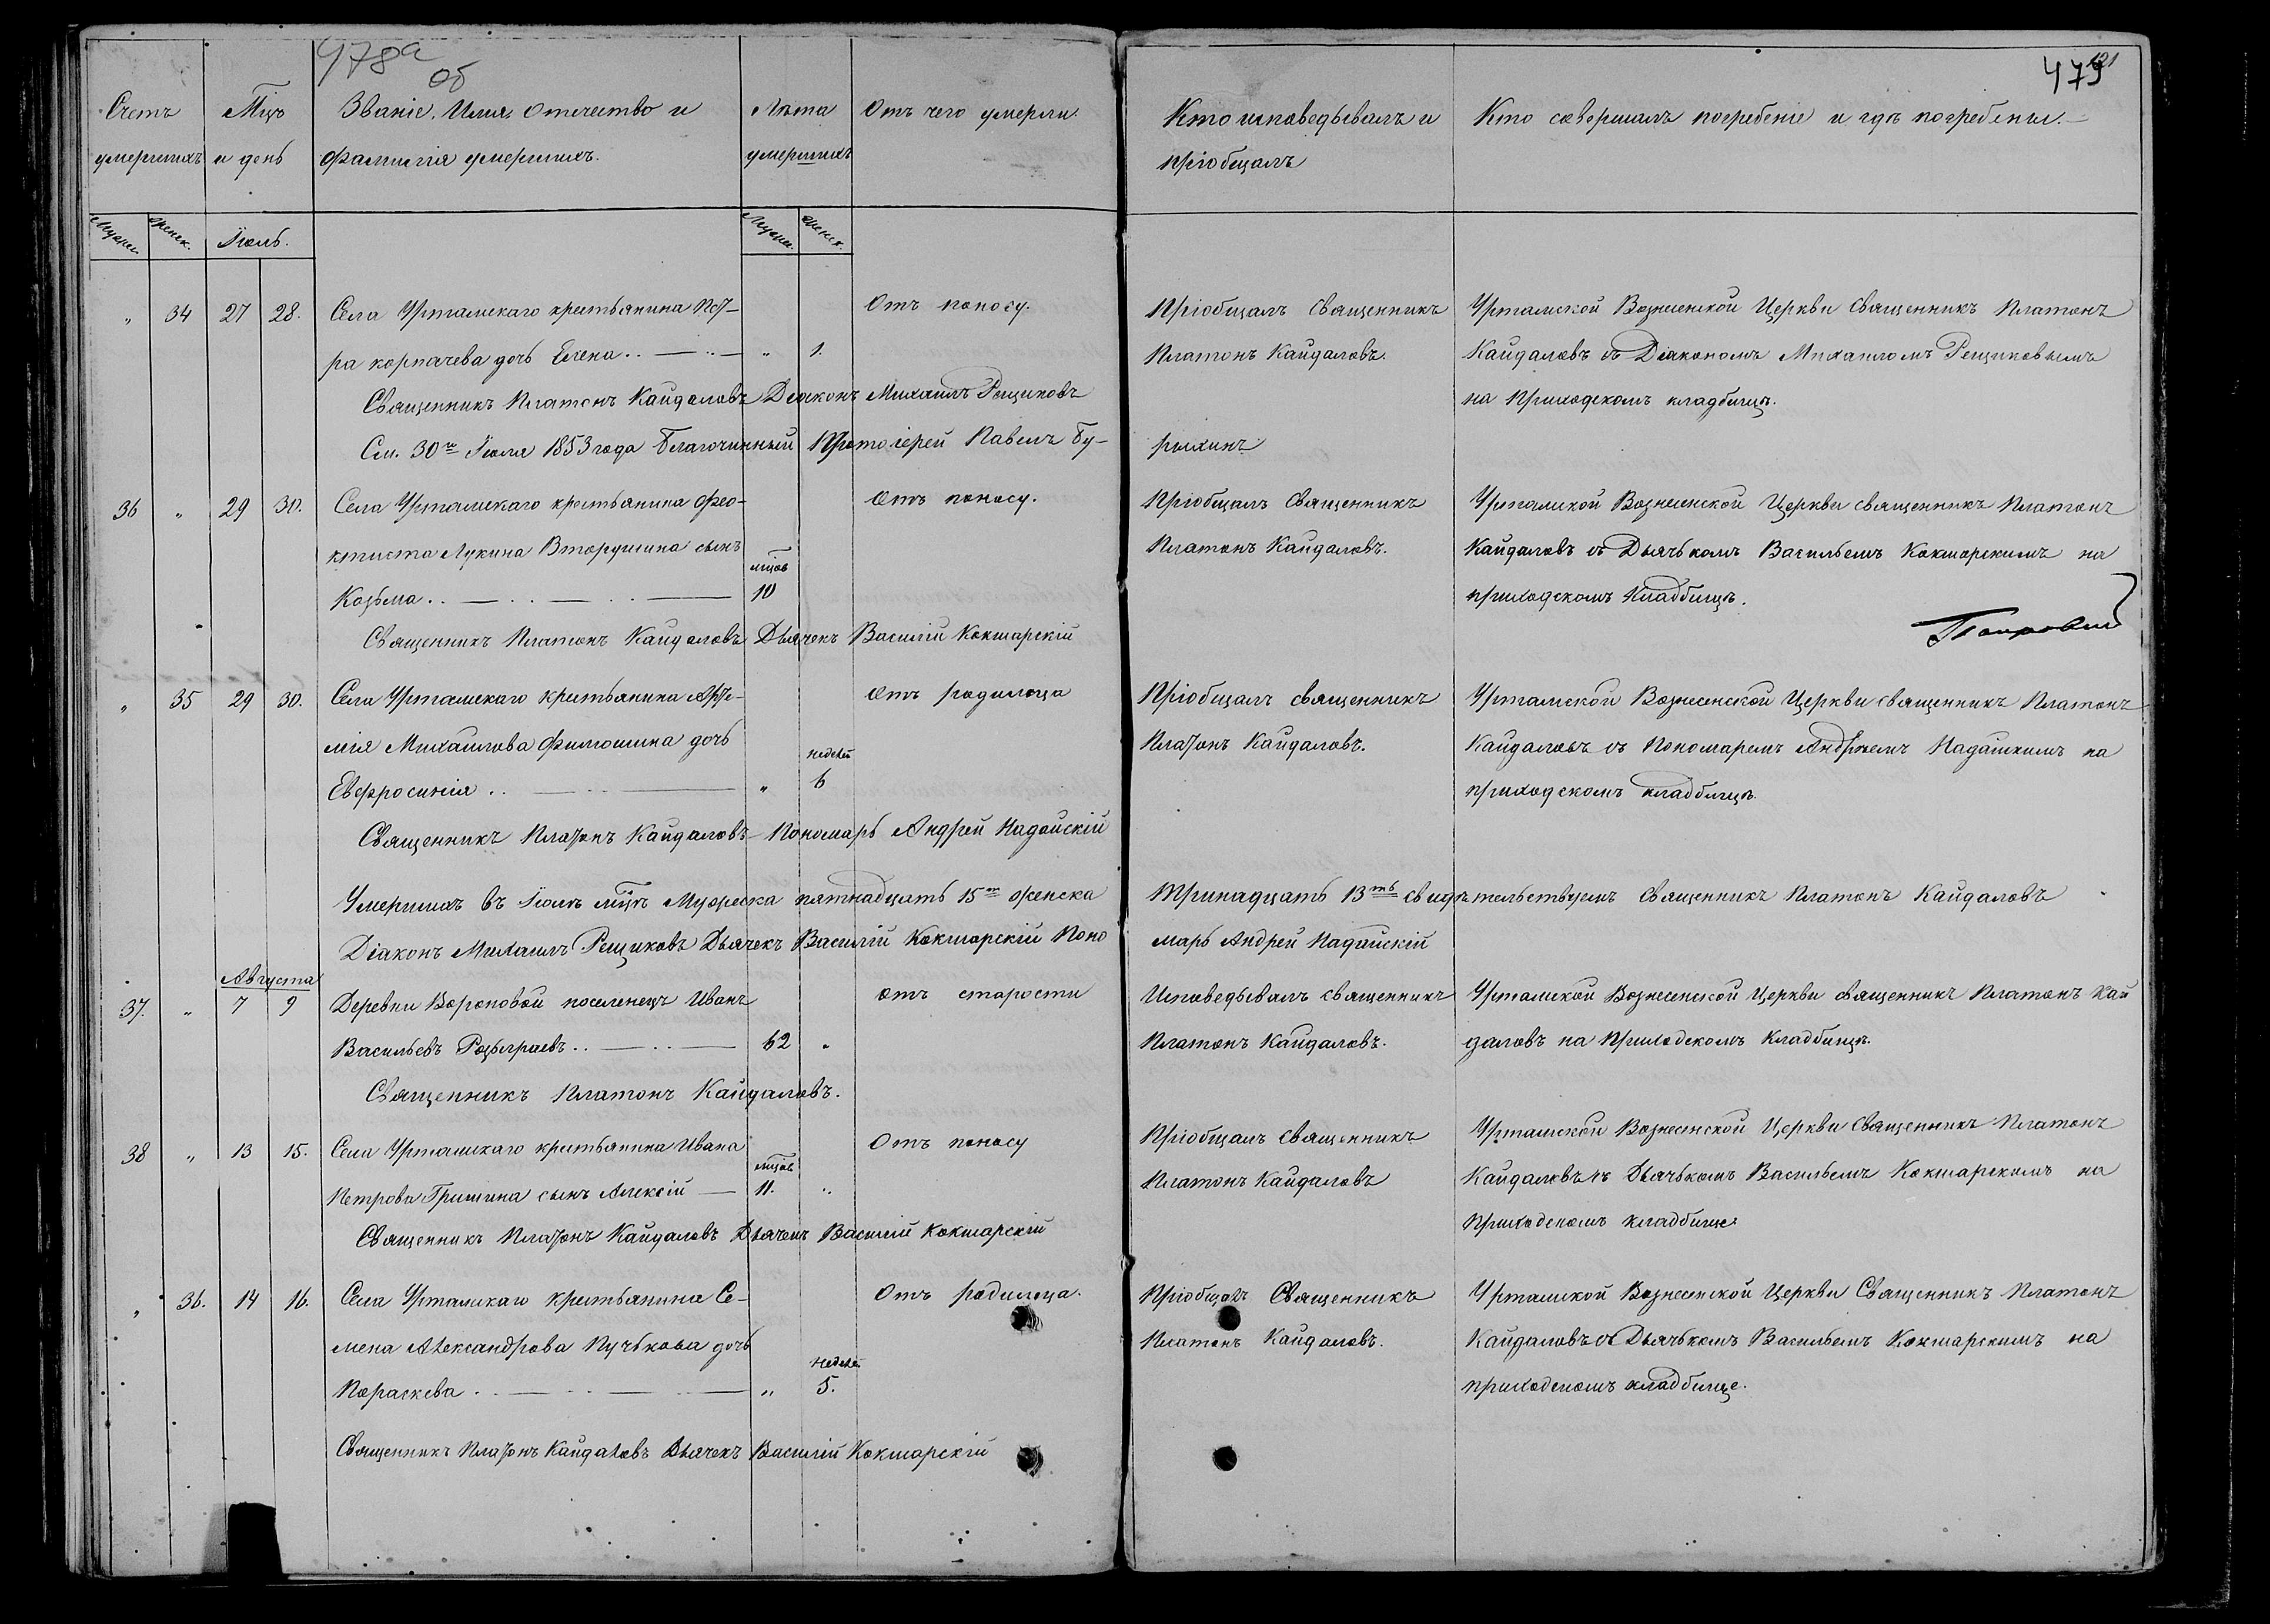 478а
об
479
Счетъ умершихъ
Мцъ и день
Званіе, Имя, Отечество и
фамилія умершихъ.
Лѣта умершихъ
Отъ чего умерли.
Кто исповедывалъ и
пріобщалъ
Кто совершалъ погребеніе и гдѣ погребены.
Мужес. Женск. Іюль. Мужес. Женск.
„ 34 27 28. Села Уртамскаго крестьянина Пет- Отъ поносу. Пріобщалъ Священникъ Уртамской Вознесенской Церкви Священникъ Платонъ
ра корпачева дочь Елена „ 1. Платонъ Кайдаловъ. Кайдаловъ съ Діакономъ Михаиломъ Рещиковымъ
Священникъ Платонъ Кайдаловъ Діаконъ Михаилъ Рещиковъ на Приходскомъ кладбищѣ.
См. 30го Іюля 1853 года Благочинный Протоіерей Павелъ Бу- рыхинъ
36 „ 29 30. Села Уртамскаго крестьянина Фео- Отъ поносу. Пріобщалъ Священникъ Уртамской Вознесенской Церкви священникъ Платонъ
ктиста Лукина Вторушина сынъ мцов Платонъ Кайдаловъ. Кайдаловъ съ Дьячькомъ Васильемъ Кокшарскимъ на
Козьма 10 приходскомъ Кладбищѣ.
Священникъ Платонъ Кайдаловъ Дьячекъ Василій Кокшарскій
„ 35 29 30. Села Уртамскаго крестьянина Арте- Отъ родимца Пріобщалъ священникъ Уртамской Вознесенской Церкви священникъ Платонъ
мія Михайлова Филюшина дочь недель Платонъ Кайдаловъ. Кайдаловъ съ Пономаремъ Андреемъ Надайскимъ на
Евфросинія „ 6 приходскомъ кладбищѣ.
Священникъ Платонъ Кайдаловъ Пономарь Андрей Надайскій
Умершихъ въ Іюлѣ мцѣ Мужеска пятнадцать 15ть женска Тринадцать 13ть свидѣтельствуемъ Священникъ Платонъ Кайдаловъ
Діаконъ Михаилъ Рещиковъ Дьячекъ Василій Кокшарскій Поно марь Андрей Надайскій
Августа
37. „ 7 9 Деревни Вороновой поселенецъ Иванъ Отъ старости Исповедывалъ священникъ Уртамской Вознесенской Церкви священникъ Платонъ Кай
Васильевъ 62 „ Платонъ Кайдаловъ. даловъ на Приходскомъ Кладбищѣ.
Священникъ Платонъ Кайдаловъ.
38 „ 13 15. Села Уртамскаго крестьянина Ивана мцов Отъ поносу Пріобщалъ Священникъ Уртамской Вознесенской Церкви Священникъ Платонъ
Петрова Гришина сынъ Алексій 11. „ Платонъ Кайдаловъ Кайдаловъ съ Дьячькомъ Васильемъ Кокшарскомъ на
Приходскомъ кладбище
Священникъ Платонъ Кайдаловъ Дьячекъ Василій Кокшарскій
„ 36. 14 16. Села Уртамскаго крестьянина Се- Отъ родимца. Пріобщалъ Священникъ Уртамской Вознесенской Церкви Священникъ Платонъ
мена Александрова Пучькова дочь недель Платонъ Кайдаловъ. Кайдаловъ съ Дьячькомъ Васильемъ Кокшарскимъ на
Параскева „ 5. приходскомъ кладбище.
Священникъ Платонъ Кайдаловъ Дьячекъ Василій Кокшарскій